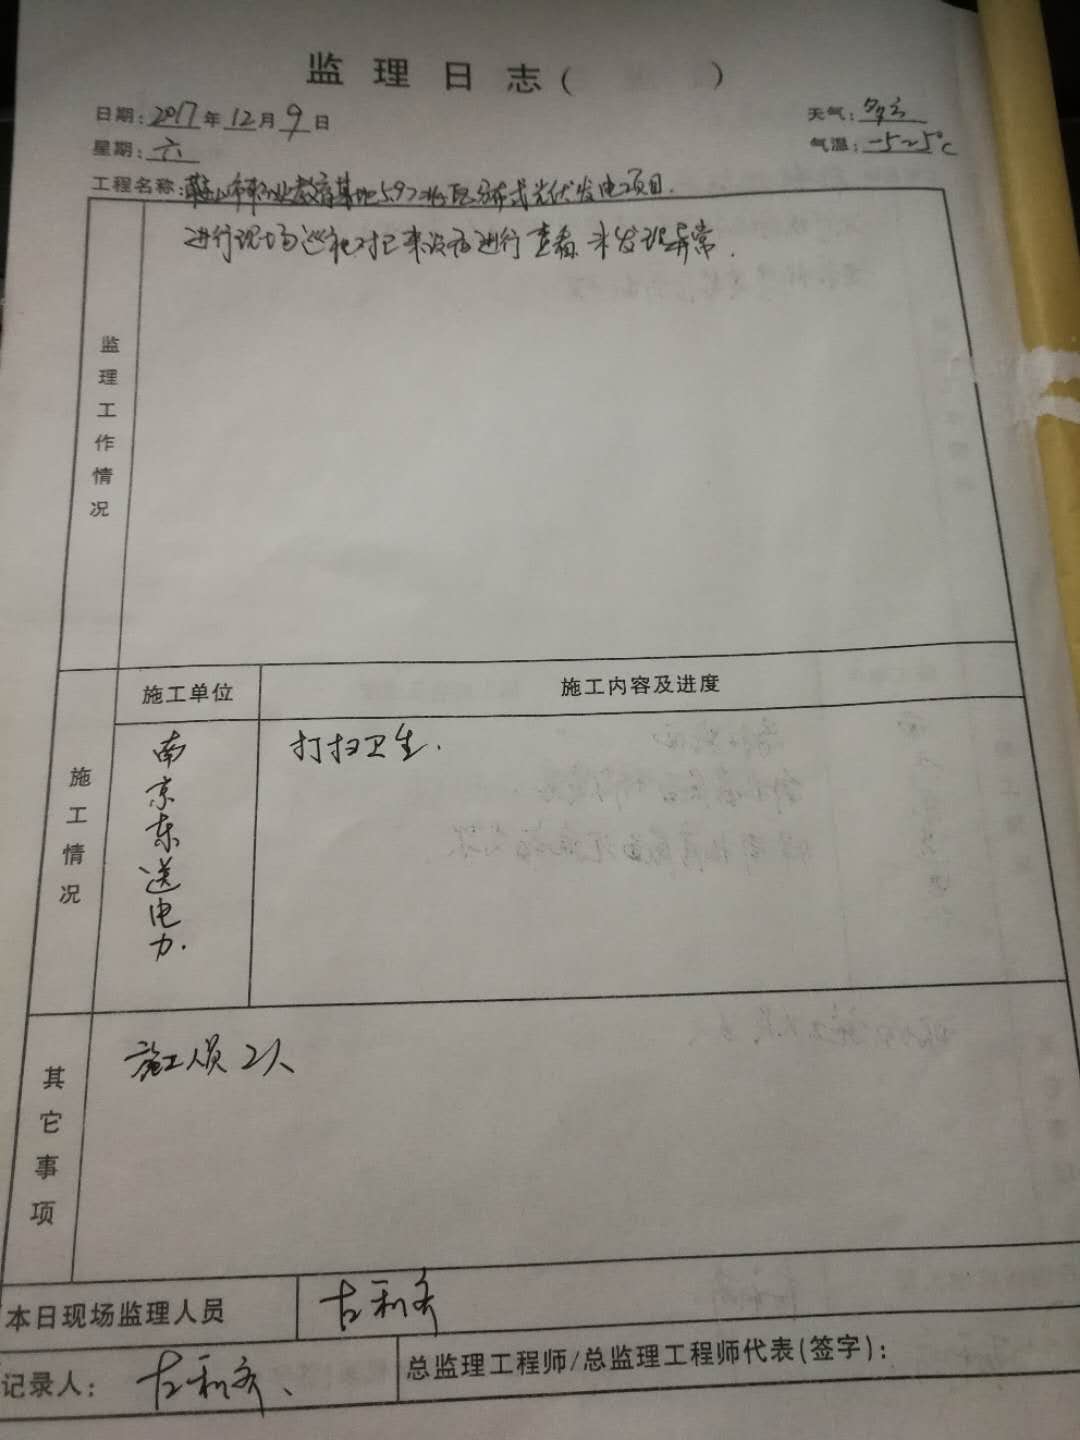 监理日志（ ）
日期：2017年12月9日
天气：多云
星期：六
气温：-5~5℃
工程名称：鞍山市职业教育基地5.972兆瓦分布式光伏发电项目.
监理工作情况
进行现场巡视对已来设备进行查看 未发现异常.
施工情况
施工单位
施工内容及进度
南京东送电力.
打扫卫生.
其它事项
施工人员 2人
本日现场监理人员
古利齐
记录人：古利齐、
总监理工程师/总监理工程师代表(签字)：